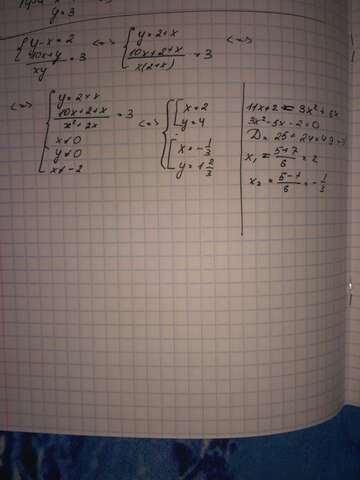 y=3
{ y-x=2 <=> { y=2+x <=>
(10x+y)/(xy) = 3 (10x+2+x)/(x(2+x)) = 3
<=> { y=2+x
(10x+2+x)/(x²+2x) = 3 <=>
x≠0
y≠0
x≠-2
{ [ x=2
y=4
[ x=-1/3
y=1 2/3
11x+2=3x²+6x
3x²-5x-2=0
D=25+24=49
x₁=(5+7)/6=2
x₂=(5-7)/6=-1/3